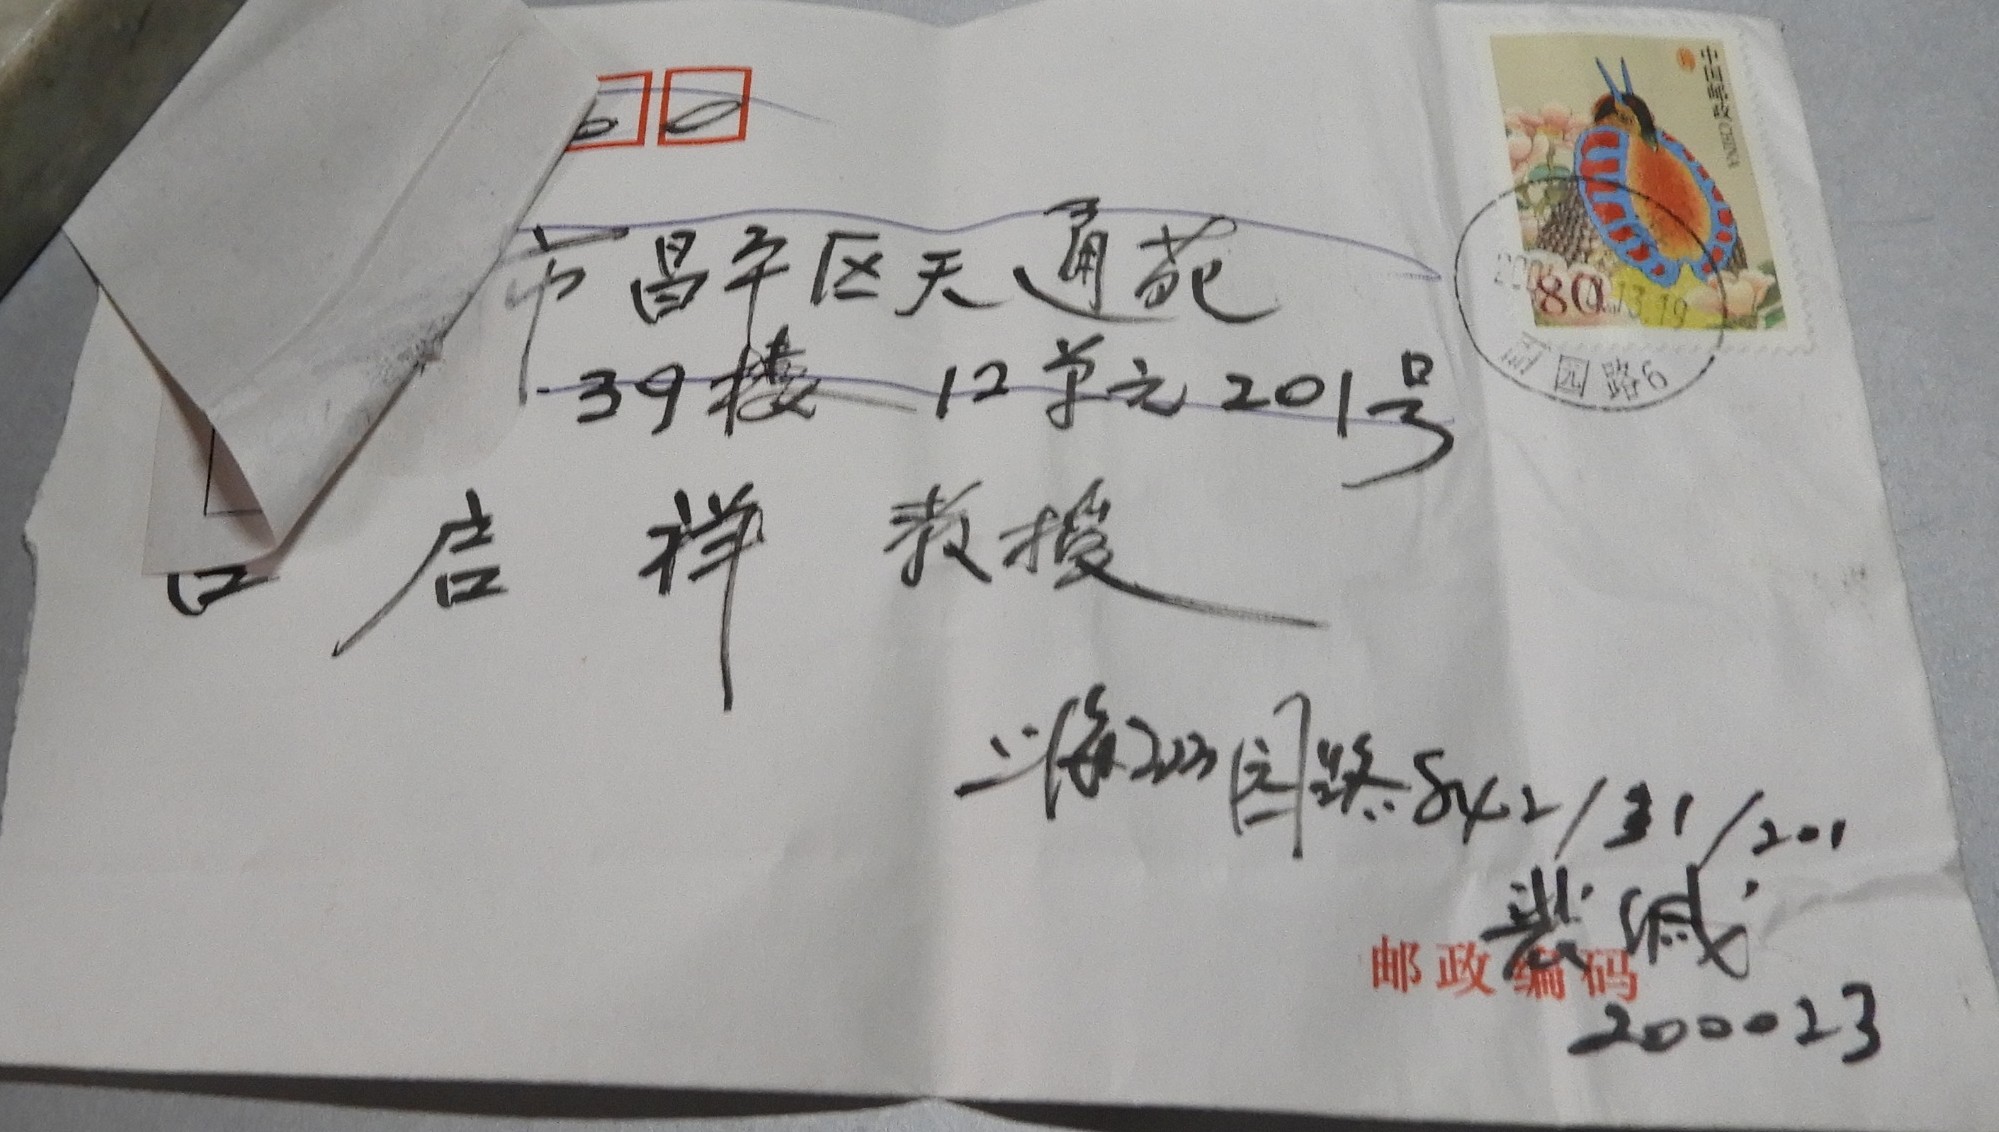 中国邮政CHINA
80分
13.19
园路6
60
市昌平区天通苑
39楼 12单元201号
启祥教授
上海 园路842/31/201
裘
邮政编码
200023